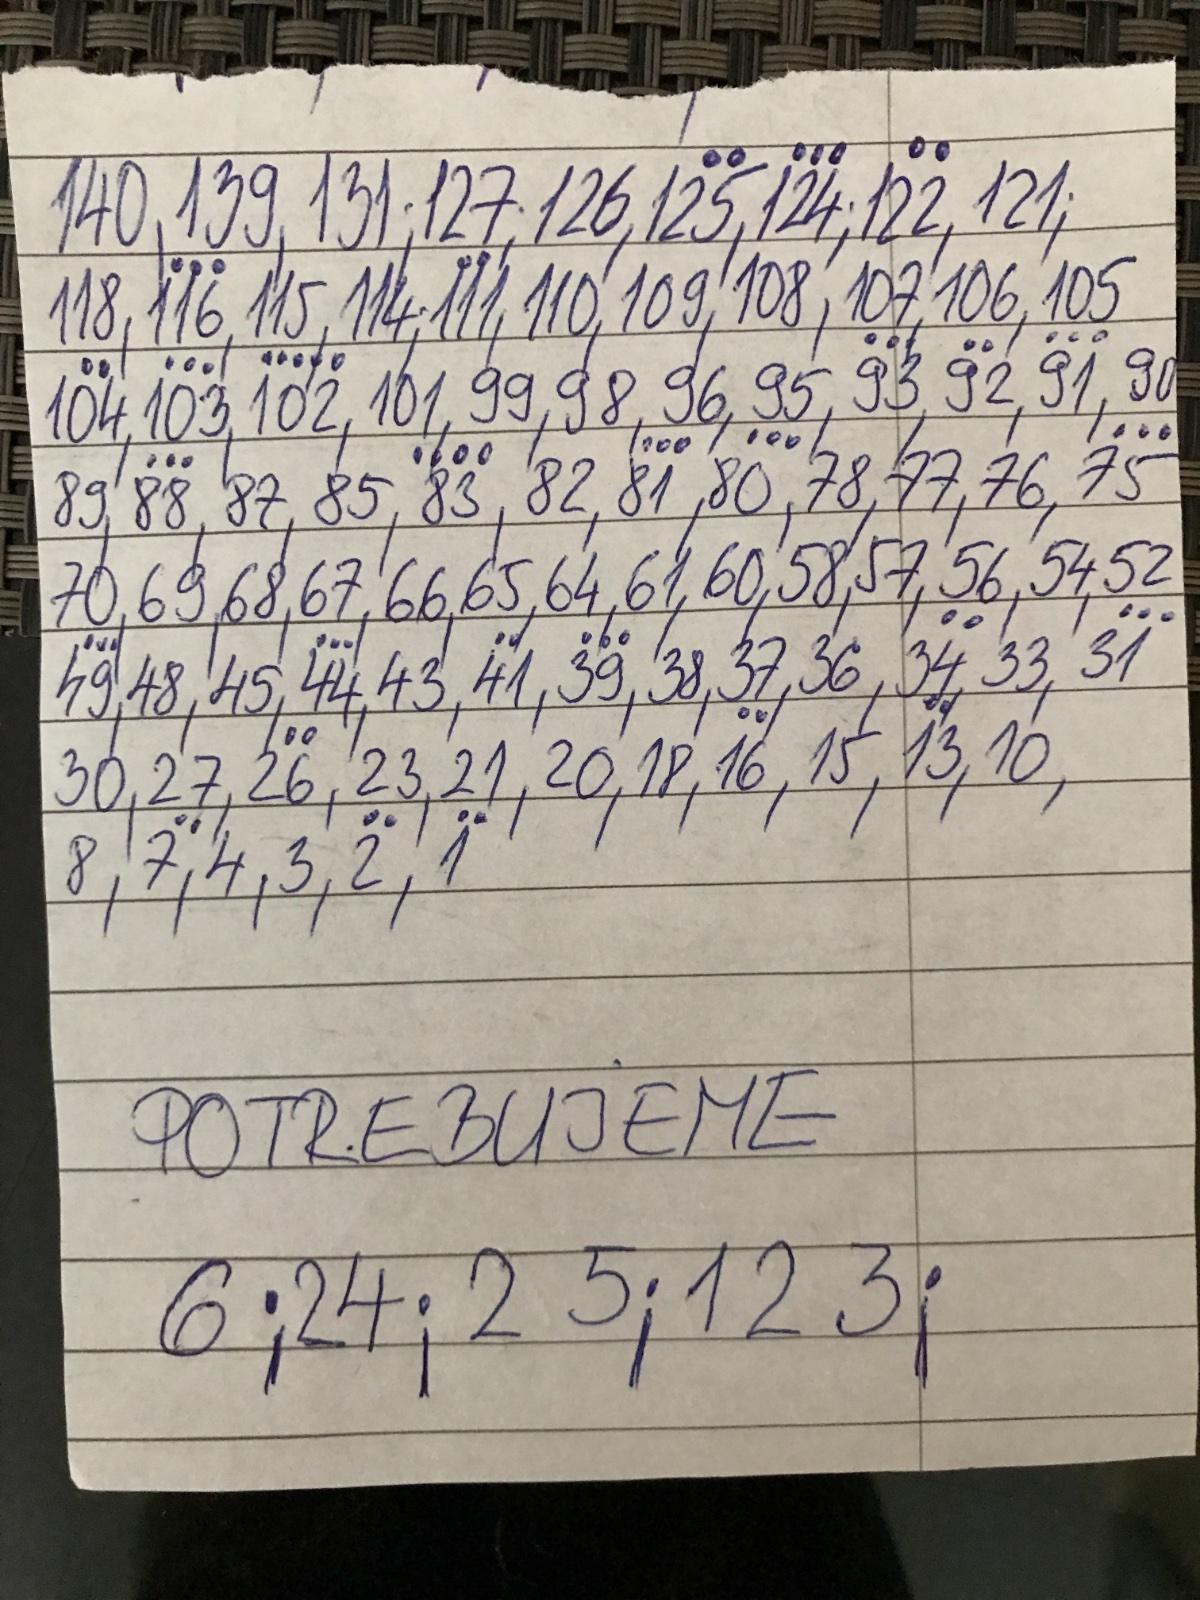 140, 139, 131, 127, 126, 125, 124, 122, 121,
118, 116, 115, 114, 111, 110, 109, 108, 107, 106, 105
104, 103, 102, 101, 99, 98, 96, 95, 93, 92, 91, 90
89, 88, 87, 85, 83, 82, 81, 80, 78, 77, 76, 75
70, 69, 68, 67, 66, 65, 64, 61, 60, 58, 57, 56, 54, 52
49, 48, 45, 44, 43, 41, 39, 38, 37, 36, 34, 33, 31
30, 27, 26, 23, 21, 20, 18, 16, 15, 13, 10,
8, 7, 4, 3, 2, 1
POTREBUJEME
6; 24; 25; 123;